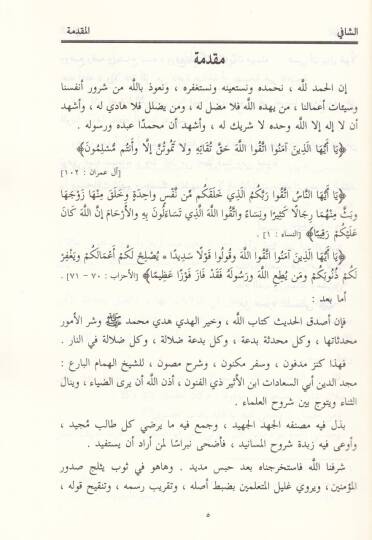 الشافي المقدمة
مقدمة
إن الحمد للَّه ، نحمده ونستعينه ونستغفره ، ونعوذ باللَّه من شرور أنفسنا
وسيئات أعمالنا ، من يهده اللَّه فلا مضل له ، ومن يضلل فلا هادي له ، وأشهد
أن لا إله إلا اللَّه وحده لا شريك له ، وأشهد أن محمدًا عبده ورسوله .
﴿يَا أَيُّهَا الَّذِينَ آمَنُوا اتَّقُوا اللَّهَ حَقَّ تُقَاتِهِ ولا تَمُوتُنَّ إِلَّا وأَنتُم مُّسْلِمُونَ﴾
[آل عمران : ١٠٢]
﴿يَا أَيُّهَا النَّاسُ اتَّقُوا رَبَّكُمُ الَّذِي خَلَقَكُم مِّن نَّفْسٍ واحِدَةٍ وخَلَقَ مِنْهَا زَوْجَهَا
وبَثَّ مِنْهُمَا رِجَالًا كَثِيرًا ونِسَاءً واتَّقُوا اللَّهَ الَّذِي تَسَاءَلُونَ بِهِ والأَرْحَامَ إِنَّ اللَّهَ كَانَ
عَلَيْكُمْ رَقِيبًا﴾ [النساء : ١] .
﴿يَا أَيُّهَا الَّذِينَ آمَنُوا اتَّقُوا اللَّهَ وقُولُوا قَوْلًا سَدِيدًا * يُصْلِحْ لَكُمْ أَعْمَالَكُمْ ويَغْفِرْ
لَكُمْ ذُنُوبَكُمْ ومَن يُطِعِ اللَّهَ ورَسُولَهُ فَقَدْ فَازَ فَوْزًا عَظِيمًا﴾ [الأحزاب : ٧٠ – ٧١] .
أما بعد :
فإن أصدق الحديث كتاب اللَّه ، وخير الهدي هدي محمد ﷺ وشر الأمور
محدثاتها ، وكل محدثة بدعة ، وكل بدعة ضلالة ، وكل ضلالة في النار .
فهذا كنز مدفون ، وسفر مكنون ، وشرح مصون ، للشيخ الهمام البارع :
مجد الدين أبي السعادات ابن الأثير ذي الفنون ، أذن اللَّه أن يرى الضياء ، وينال
الثناء ويتوج بين شروح العلماء .
بذل فيه مصنفه الجهد الجهيد ، وجمع فيه ما يرضي كل طالب مُجيد ،
وأوعى فيه زبدة شروح المسانيد ، فأضحى نبراسًا لمن أراد أن يستفيد .
شرفنا اللَّه فاستخرجناه بعد حبس مديد . وهاهو في ثوب يثلج صدور
المؤمنين ، ويروي غليل المتعلمين بضبط أصله ، وتقريب رسمه ، وتنقيح قوله ،
٥